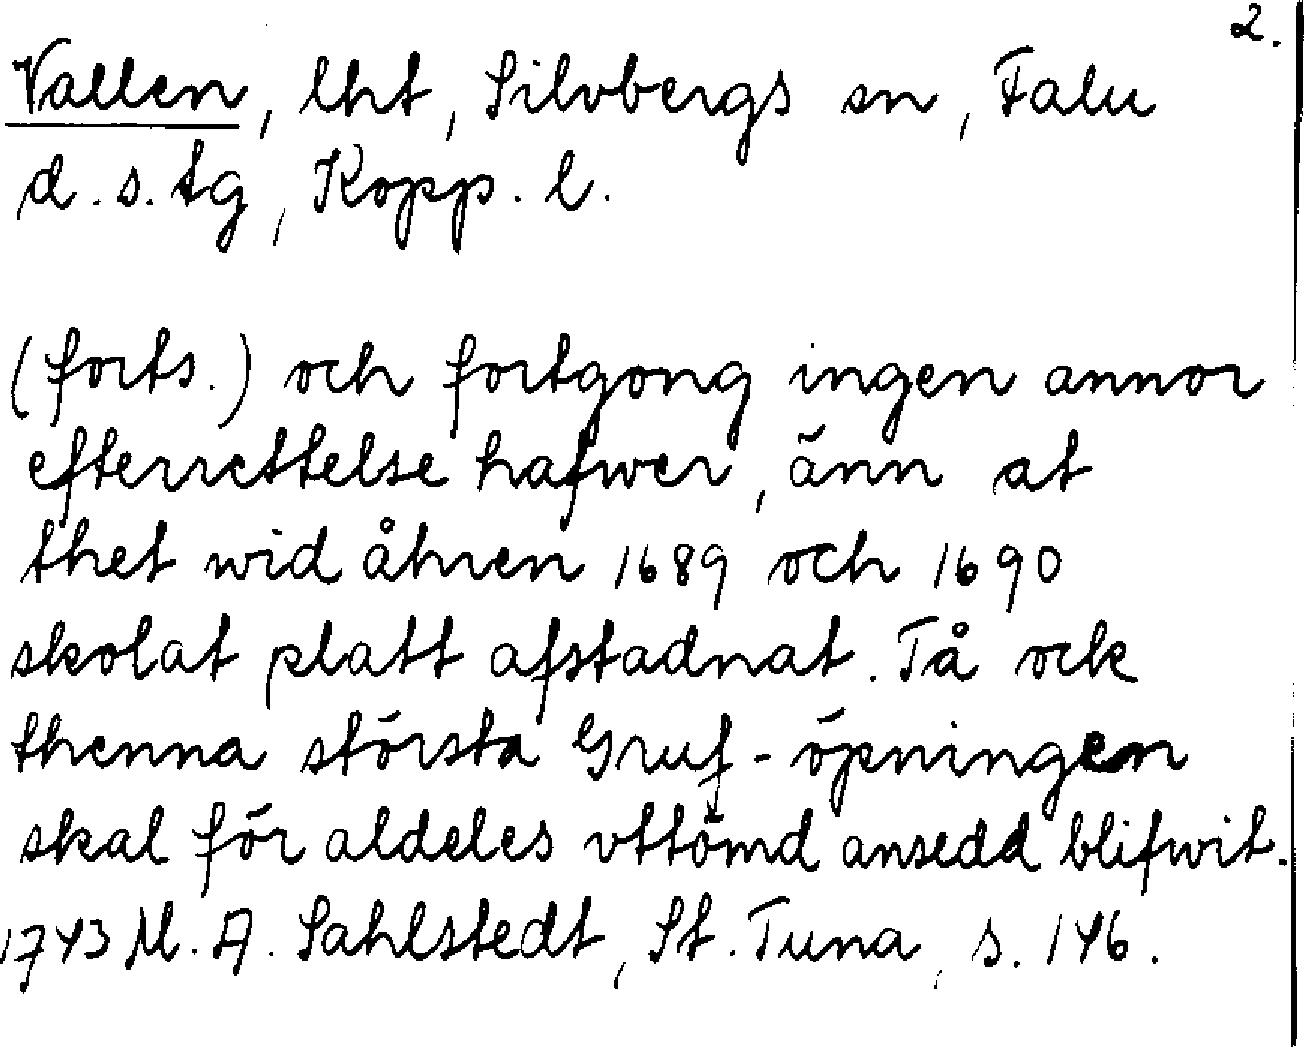 2.
Vallen, lht, Silvbergs sn, Falu
d. s. tg, Kopp. l.
(forts.) och fortgong ingen annor
efterrettelse hafwer, änn at
thet wid åhren 1689 och 1690
skolat platt afstadnat. Tå ock
thenna största Gruf-öpningen
skal för aldeles vttömd ansedd blifwit.
1743 M. A. Sahlstedt, St. Tuna, s. 146.